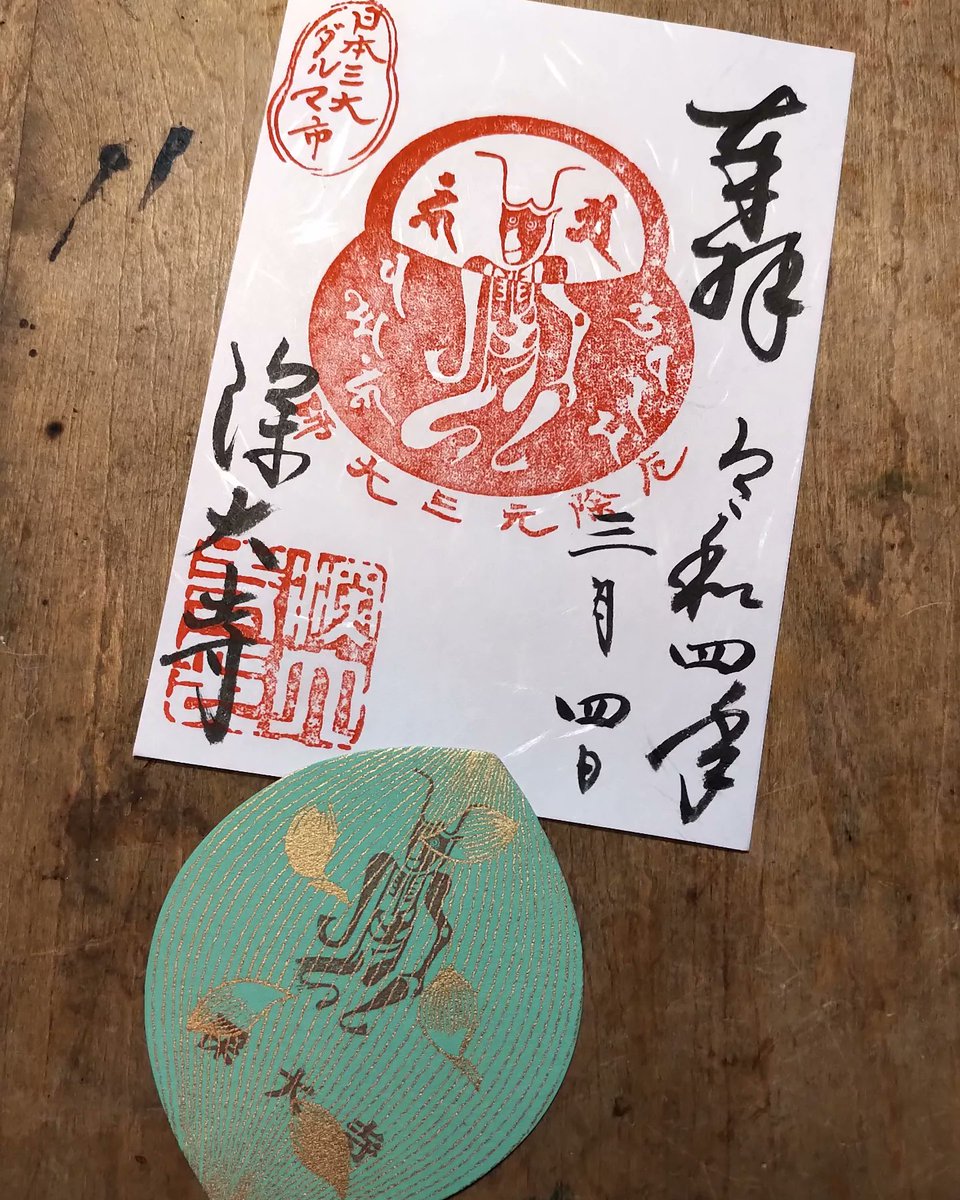 奉拝
令和四年
三月四日
日本三大
ダルマ市
厄除元三大師
深大寺
深大寺